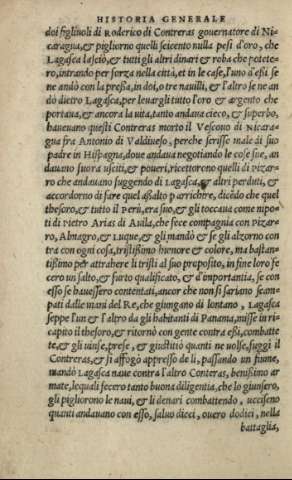 HISTORIA GENERALE
doi figliuoli di Roderico di Contreras gouernatore di Ni-
caragua, & pigliorno quelli seicento nulla pesi d'oro, che
Lagasca lasciò, & tutti gli altri dinari & roba che potete-
ro, intrando per forza nella città, et in le case, l'uno d'essi se
ne andò con la pressa, in doi, o tre nauilli, & l'altro se ne an
dò dietro Lagasca, per leuargli tutto l'oro & argento che
portaua, & ancora la uita, tanto andaua cieco, & superbo,
haueuano questi Contreras morto il Vescouo di Nicara-
gua fra Antonio di Valdiuieso, perche scrisse male di suo
padre in Hispagna, doue andaua negotiando le cose sue, an
dauano fuora usciti, & poueri, ricettorono quelli di Pizar-
ro che andauano fuggendo di Lagasca, & altri perduti, &
accordorno di fare quel assalto p arrichire, dicēdo che quel
thesoro, & tutto il Perù, era suo, & gli toccaua come nipo-
ti di Pietro Arias di Auila, che fece compagnia con Pizar-
ro, Almagro, & Luque, & gli mandò & se gli alzorno con
tra con ogni cosa, tristissimo humore & colore, ma bastan-
tissimo per attrahere li tristi al suo proposito, in fine loro fe
cero un salto, & furto qualificato, & d'importantia, se con
esso se hauessero contentati, ancor che non si sariano scam-
pati dalle mani del Re, che giungano di lontano, Lagasca
seppe l'un & l'altro da gli habitanti di Panama, misse in ri-
capito il thesoro, & ritornò con gente contra essi, combatte
te, & gli uinse, prese, & giustitiò quanti ne uolse, fuggì il
Contreras, & si affogò appresso de lì, passando un fiume,
mandò Lagasca naue contra l'altro Conteras, benissimo ar
mate, lequali fecero tanto buona diligentia, che lo giunsero,
gli pigliorono le naui, & li denari combattendo, uccisero
quanti andauano con esso, saluo dieci, ouero dodici, nella
battaglia,